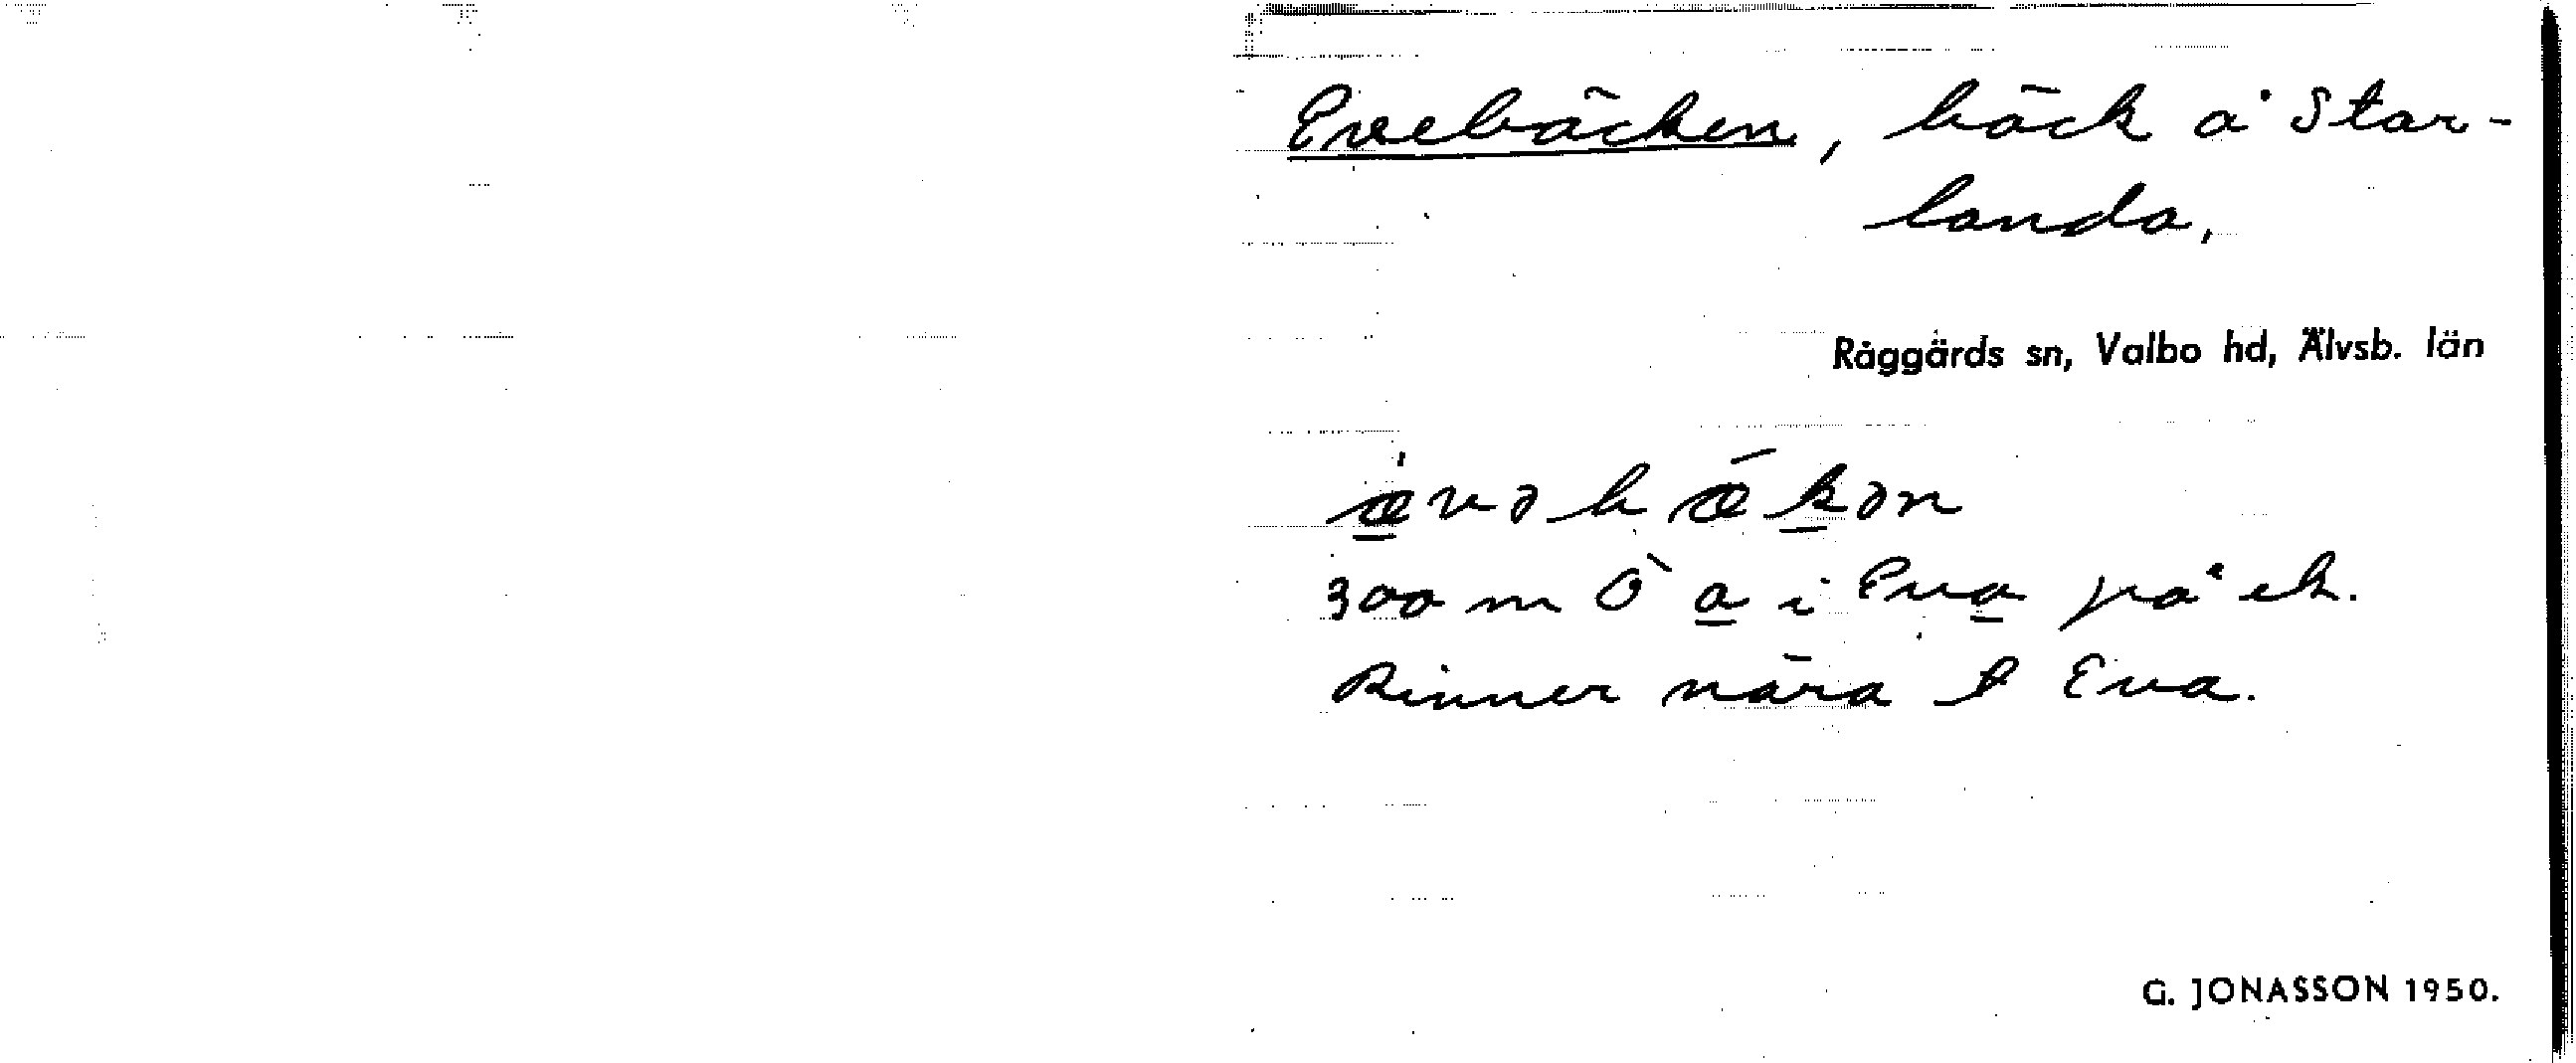 Evebäcken, bäck å Star-
landa,
Råggärds sn, Valbo hd, Älvsb. län
ævəbækən
300 m Ö a i Eva på ek.
Rinner nära t Eva.
G. JONASSON 1950.